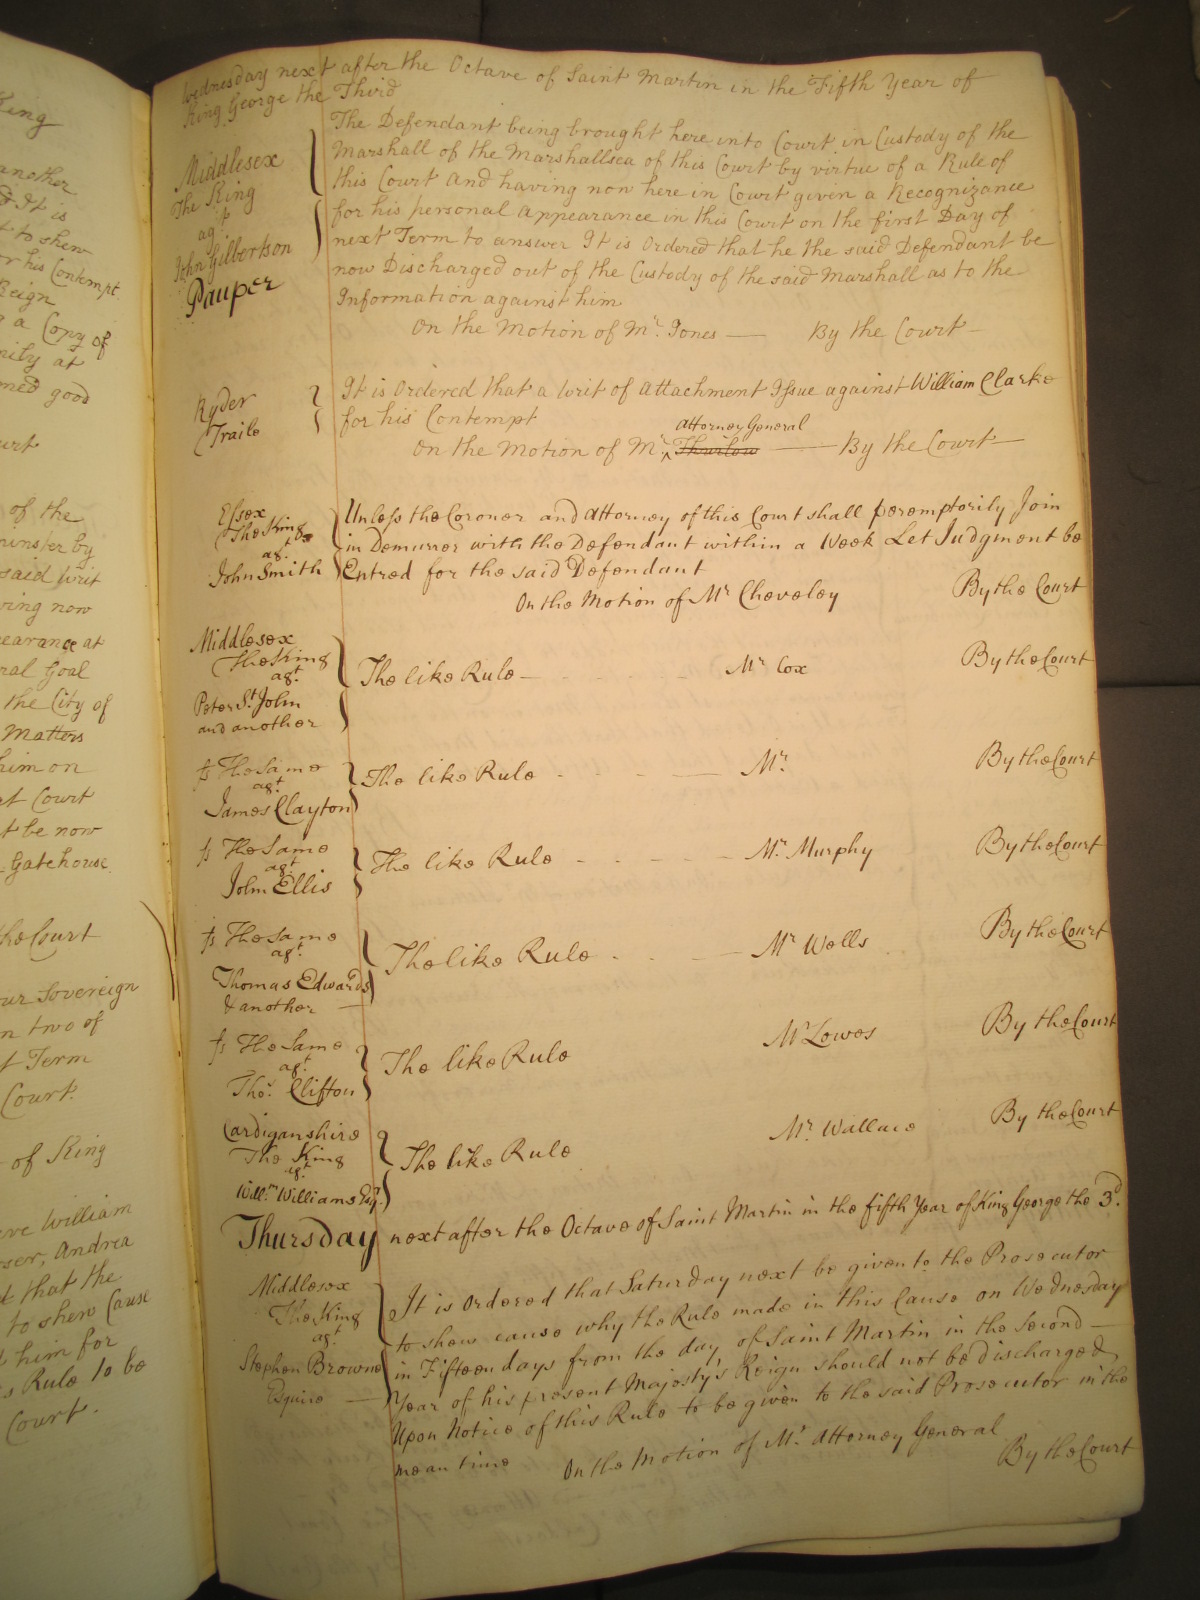 King
another
It is
to shew
or his Contempt
Reign
a Copy of
nity at
med good
urt
of the
minster by
said writ
ving now
earance at
ral Goal
the City of
Matters
him on
at Court
t be now
Gatehouse
the Court
our Sovereign
n two of
t Term
Court.
of King
William
Andrea
that the
to shew Cause
him for
s Rule to be
Court.
Wednesday next after the Octave of Saint Martin in the Fifth Year of
King George the Third
Middlesex
The King
agt
John Gilbertson
Pauper
The Defendant being brought here into Court in Custody of the
Marshall of the Marshallsea of this Court by virtue of a Rule of
this Court And having now here in Court given a Recognizance
for his personal Appearance in this Court on the first Day of
next Term to answer It is Ordered that he the said Defendant be
now Discharged out of the Custody of the said Marshall as to the
Information against him
On the Motion of Mr. Jones — By the Court
Ryder
Traile
It is Ordered that a writ of Attachment Issue against William Clarke
for his Contempt
Attorney General
On the Motion of Mr. Thurlow — By the Court
Essex
The King
agt.
John Smith
Unless the Coroner and Attorney of this Court shall peremptorily Join
in Demurrer with the Defendant within a Week Let Judgment be
Entred for the said Defendant
On the Motion of Mr Cheveley By the Court
Middlesex
The King
agt.
Peter St. John
and another
The like Rule Mr Cox By the Court
fs The Same
agt.
James Clayton
The like Rule Mr. By the Court
fs The Same
agt
John Ellis
The like Rule Mr. Murphy By the Court
fs The Same
agt.
Thomas Edwards
& another
The like Rule Mr Wells By the Court
fs The Same
agt.
Thos. Clifton
The like Rule Mr Lowes By the Court
Cardiganshire
The King
agt.
Willm. Williams Esqr.
The like Rule Mr. Wallace By the Court
Thursday next after the Octave of Saint Martin in the fifth Year of King George the 3d.
Middlesex
The King
agt.
Stephen Browne
Esquire
It is Ordered that Saturday next be given to the Prosecutor
to shew cause why the Rule made in this Cause on Wednesday
in Fifteen days from the day of Saint Martin in the Second
Year of his present Majesty's Reign should not be discharged
Upon Notice of this Rule to be given to the said Prosecutor in the
mean time
On the Motion of Mr. Attorney General
By the Court